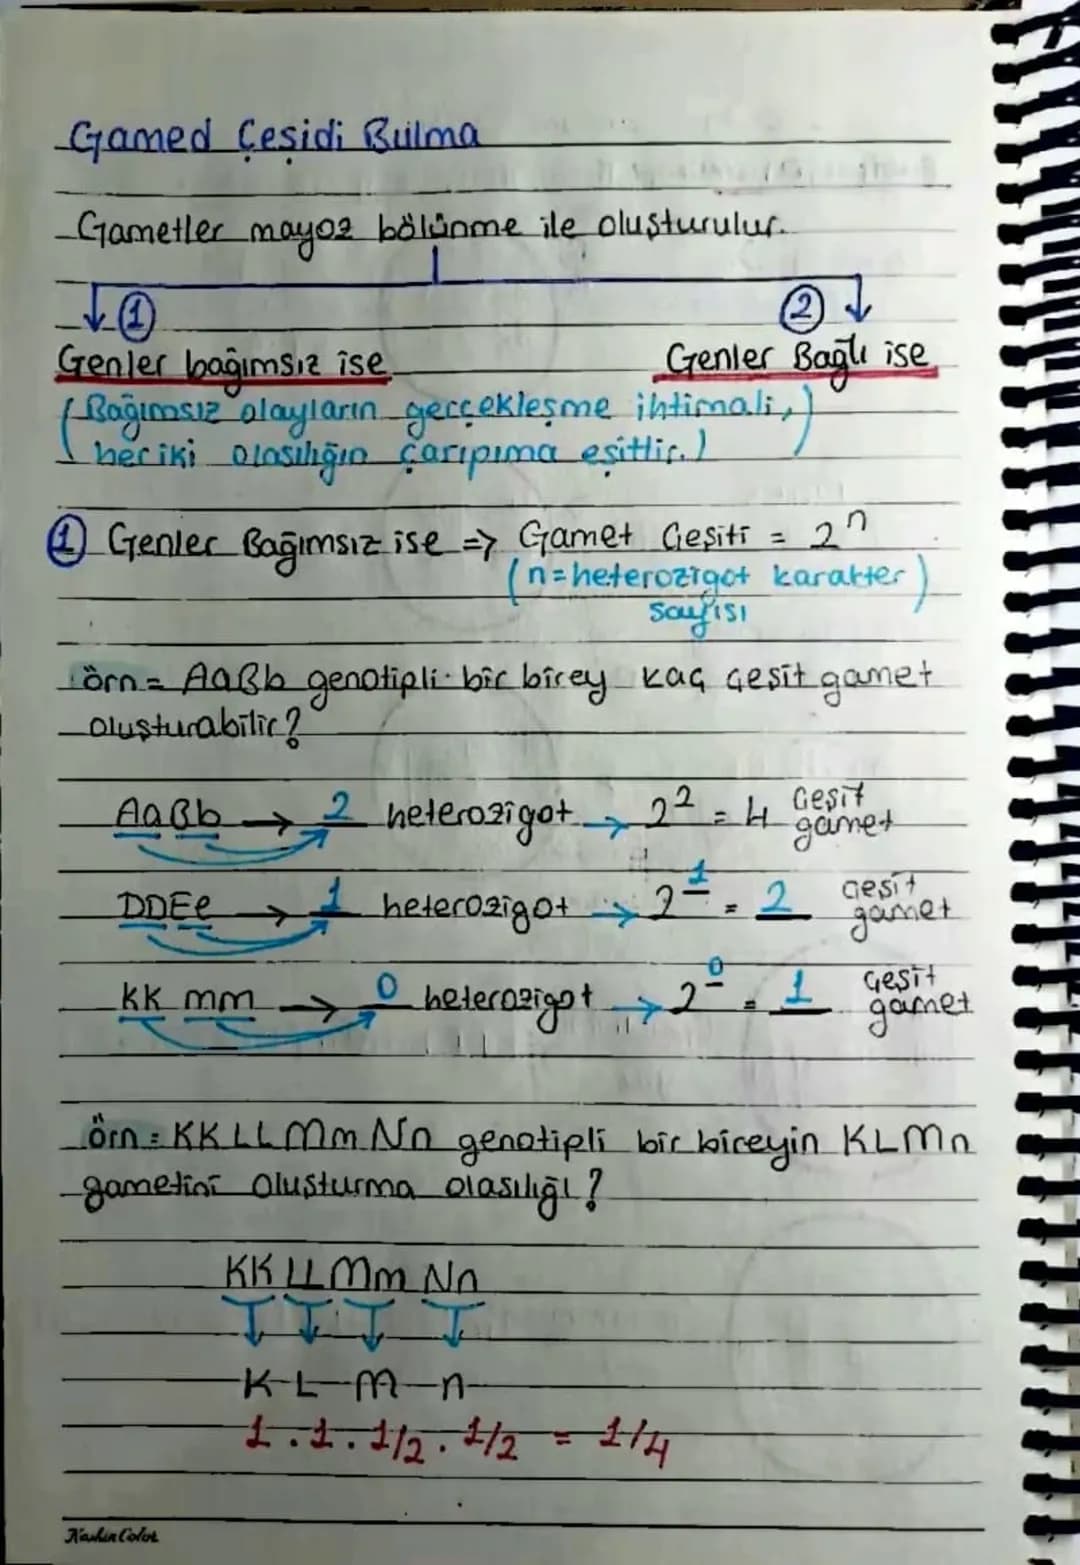 Gamed Çeşidi Bulma
Gametler mayoz bölünme ile oluşturulur.
① ②
Genler bağımsız ise Genler Bağlı ise
(Bağımsız olayların gerçekleşme ihtimali,
her iki olasılığın çarıpıma eşittir.)
① Genler Bağımsız ise => Gamet Çeşiti = 2ⁿ
(n=heterozigot karakter)
sayısı
örn= AaBb genotipli bir birey kaç çeşit gamet
oluşturabilir?
AaBb → 2 heterozigot → 2² = 4 çeşit gamet
DDEe → 1 heterozigot → 2¹ = 2 çeşit gamet
KK mm → 0 heterozigot → 2⁰ = 1 çeşit gamet
örn= KKLLMmNn genotipli bir bireyin KLMn
gametini oluşturma olasılığı?
KK LL Mm Nn
K L M n
1 . 1 . 1/2 . 1/2 = 1/4